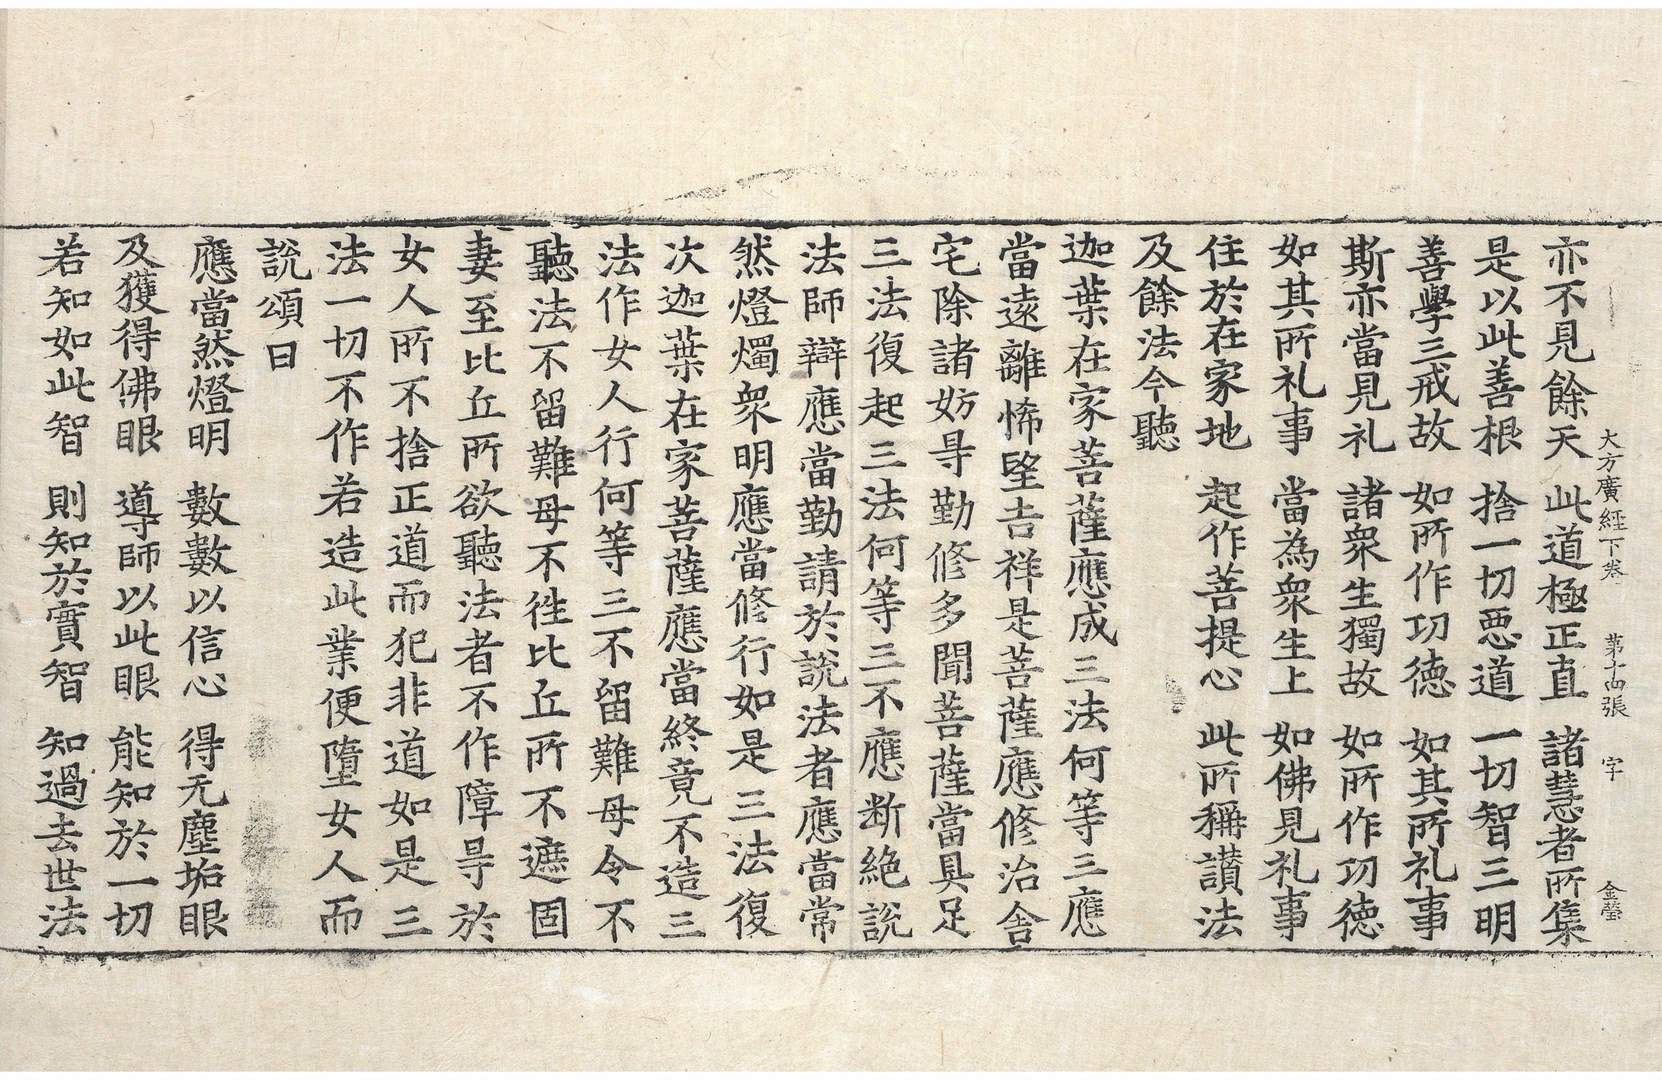 大方廣經下卷 第十四張 字 金瑩
亦不見餘天 此道極正直 諸慧者所集
是以此善根 捨一切惡道 一切智三明
善學三戒故 如所作功德 如其所礼事
斯亦當見礼 諸衆生獨故 如所作功德
如其所礼事 當為衆生上 如佛見礼事
住於在家地 起作菩提心 此所稱讃法
及餘法今聽
迦葉在家菩薩應成三法何等三應
當遠離悕望吉祥是菩薩應修治舍
宅除諸妨㝵勤修多聞菩薩當具足
三法復起三法何等三不應断絶說
法師辯應當勤請於說法者應當常
然燈燭衆明應當修行如是三法復
次迦葉在家菩薩應當終竟不造三
法作女人行何等三不留難母令不
聽法不留難母不徃比丘所不遮固
妻至比丘所欲聽法者不作障㝵於
女人所不捨正道而犯非道如是三
法一切不作若造此業便墮女人而
說頌曰
應當然燈明 數數以信心 得无塵垢眼
及獲得佛眼 導師以此眼 能知於一切
若知如此智 則知於實智 知過去世法